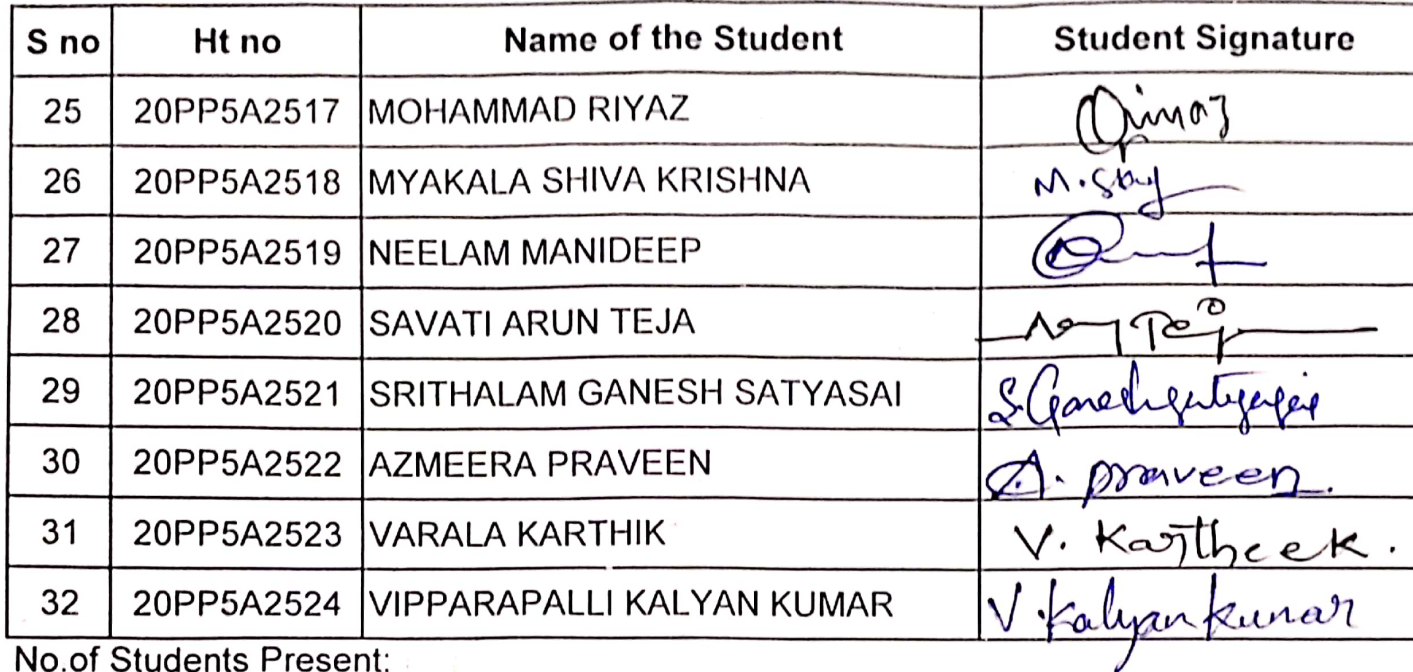 S no Ht no Name of the Student Student Signature
25 20PP5A2517 MOHAMMAD RIYAZ
26 20PP5A2518 MYAKALA SHIVA KRISHNA M.
27 20PP5A2519 NEELAM MANIDEEP
28 20PP5A2520 SAVATI ARUN TEJA
29 20PP5A2521 SRITHALAM GANESH SATYASAI S.Ganesh
30 20PP5A2522 AZMEERA PRAVEEN A. praveen.
31 20PP5A2523 VARALA KARTHIK V. Kartheek.
32 20PP5A2524 VIPPARAPALLI KALYAN KUMAR V.Kalyan kumar
No.of Students Present: